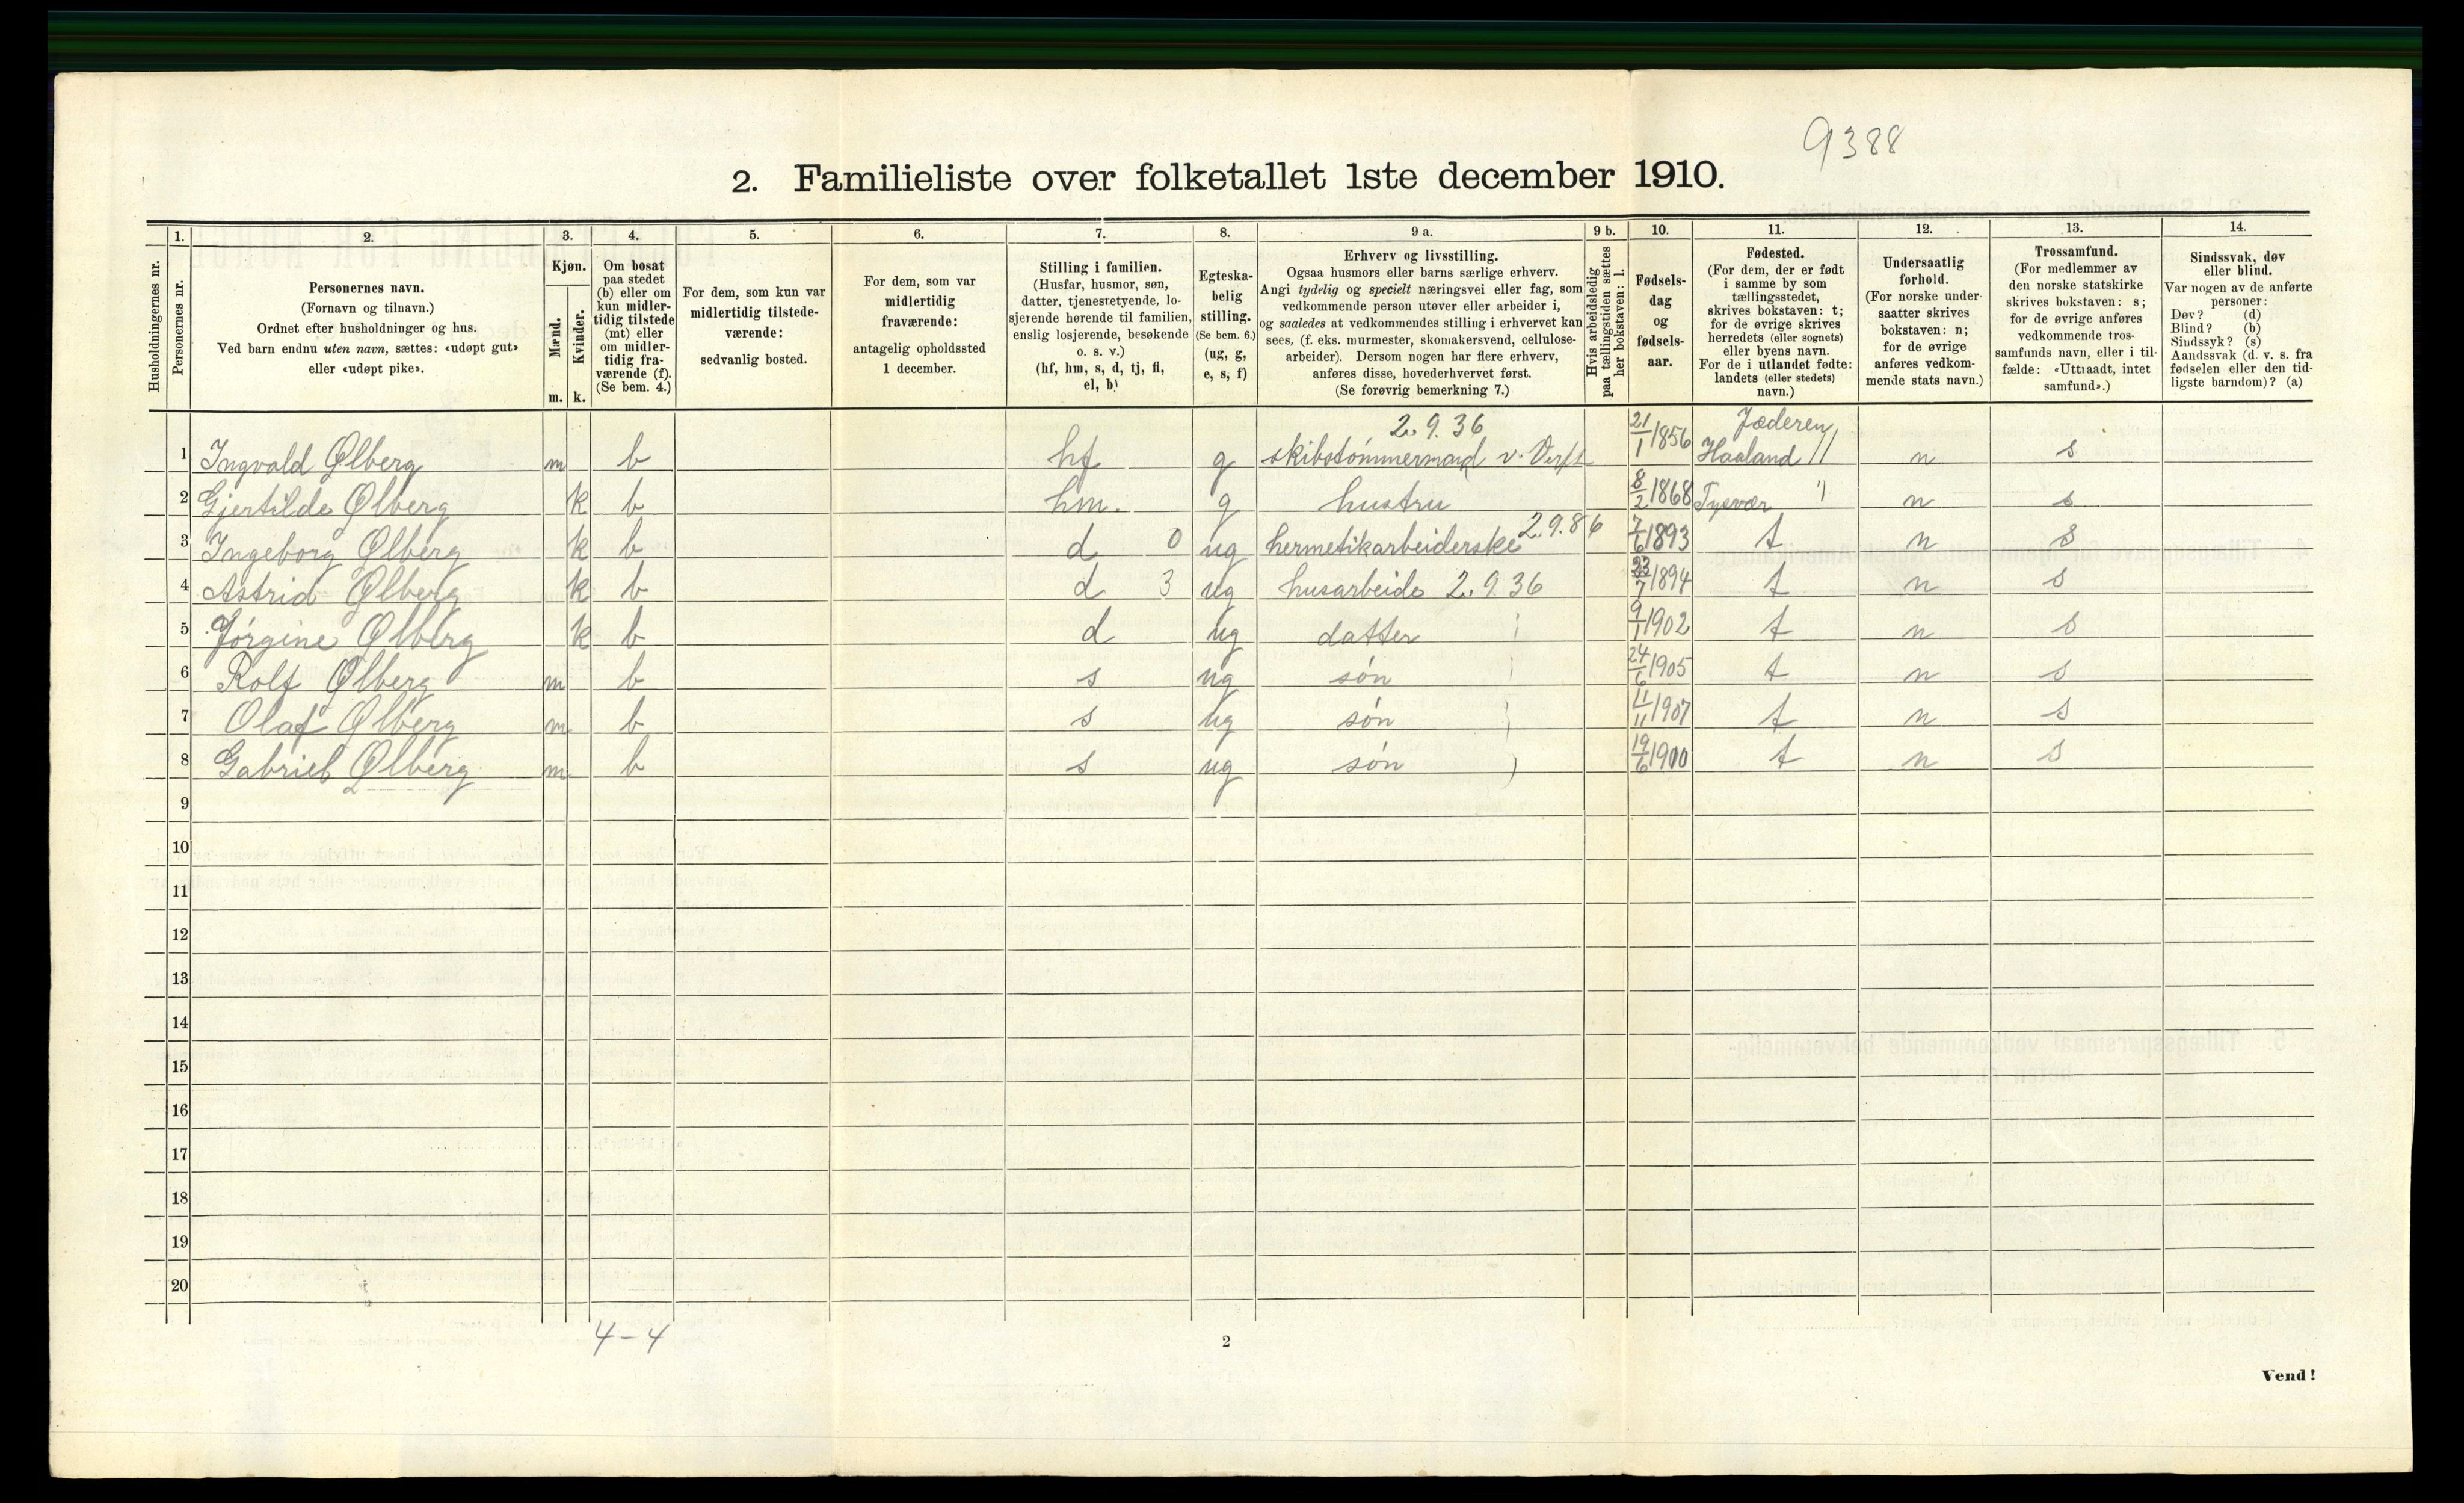 9388
2. Familieliste over folketallet 1ste december 1910.
Husholdningernes nr.
1.
Personernes nr.
2.
Personernes navn.
(Fornavn og tilnavn.)
Ordnet efter husholdninger og hus.
Ved barn endnu uten navn, sættes: «udøpt gut»
eller «udøpt pike».
3.
Kjøn.
Mænd.
Kvinder.
m. k.
4.
Om bosat
paa stedet
(b) eller om
kun midler-
tidig tilstede
(mt) eller
om midler-
tidig fra-
værende (f).
(Se bem. 4.)
5.
For dem, som kun var
midlertidig tilstede-
værende:
sedvanlig bosted.
6.
For dem, som var
midlertidig
fraværende:
antagelig opholdssted
1 december.
7.
Stilling i familien.
(Husfar, husmor, søn,
datter, tjenestetyende, lo-
sjerende hørende til familien,
enslig losjerende, besøkende
o. s. v.)
(hf, hm, s, d, tj, fl,
el, b)
8.
Egteska-
belig
stilling.
(Se bem. 6.)
(ug, g,
e, s, f)
9 a.
Erhverv og livsstilling.
Ogsaa husmors eller barns særlige erhverv.
Angi tydelig og specielt næringsvei eller fag, som
vedkommende person utøver eller arbeider i,
og saaledes at vedkommendes stilling i erhvervet kan
sees, (f. eks. murmester, skomakersvend, cellulose-
arbeider). Dersom nogen har flere erhverv,
anføres disse, hovederhvervet først.
(Se forøvrig bemerkning 7.)
9 b.
Hvis arbeidsledig
paa tællingstiden sættes
her bokstaven: l.
10.
Fødsels-
dag
og
fødsels-
aar.
11.
Fødested.
(For dem, der er født
i samme by som
tællingsstedet,
skrives bokstaven: t;
for de øvrige skrives
herredets (eller sognets)
eller byens navn.
For de i utlandet fødte:
landets (eller stedets)
navn.)
12.
Undersaatlig
forhold.
(For norske under-
saatter skrives
bokstaven: n;
for de øvrige
anføres vedkom-
mende stats navn.)
13.
Trossamfund.
(For medlemmer av
den norske statskirke
skrives bokstaven: s;
for de øvrige anføres
vedkommende tros-
samfunds navn, eller i til-
fælde: «Uttraadt, intet
samfund».)
14.
Sindssvak, døv
eller blind.
Var nogen av de anførte
personer:
Døv? (d)
Blind? (b)
Sindssyk? (s)
Aandssvak (d. v. s. fra
fødselen eller den tid-
ligste barndom)? (a)
2.9.36 Jæderen
1 Ingvald Ølberg m b hf g skibstømmermand v. Verft 21/1 1856 Haaland n s
2 Gjertilde Ølberg k b hm. g hustru 8/2 1868 Tysvær n s
3 Ingeborg Ølberg k b d 0 ug hermetikarbeiderske 2.9.86 7/6 1893 t n s
4 Astrid Ølberg k b d 3 ug husarbeide 2.9.36 23/7 1894 t n s
5 Jørgine Ølberg k b d ug datter 9/1 1902 t n s
6 Rolf Ølberg m b s ug søn 24/6 1905 t n s
7 Olaf Ølberg m b s ug søn 11/11 1907 t n s
8 Gabriel Ølberg m b s ug søn 19/6 1900 t n s
9
10
11
12
13
14
15
16
17
18
19
20
4-4
2
Vend!